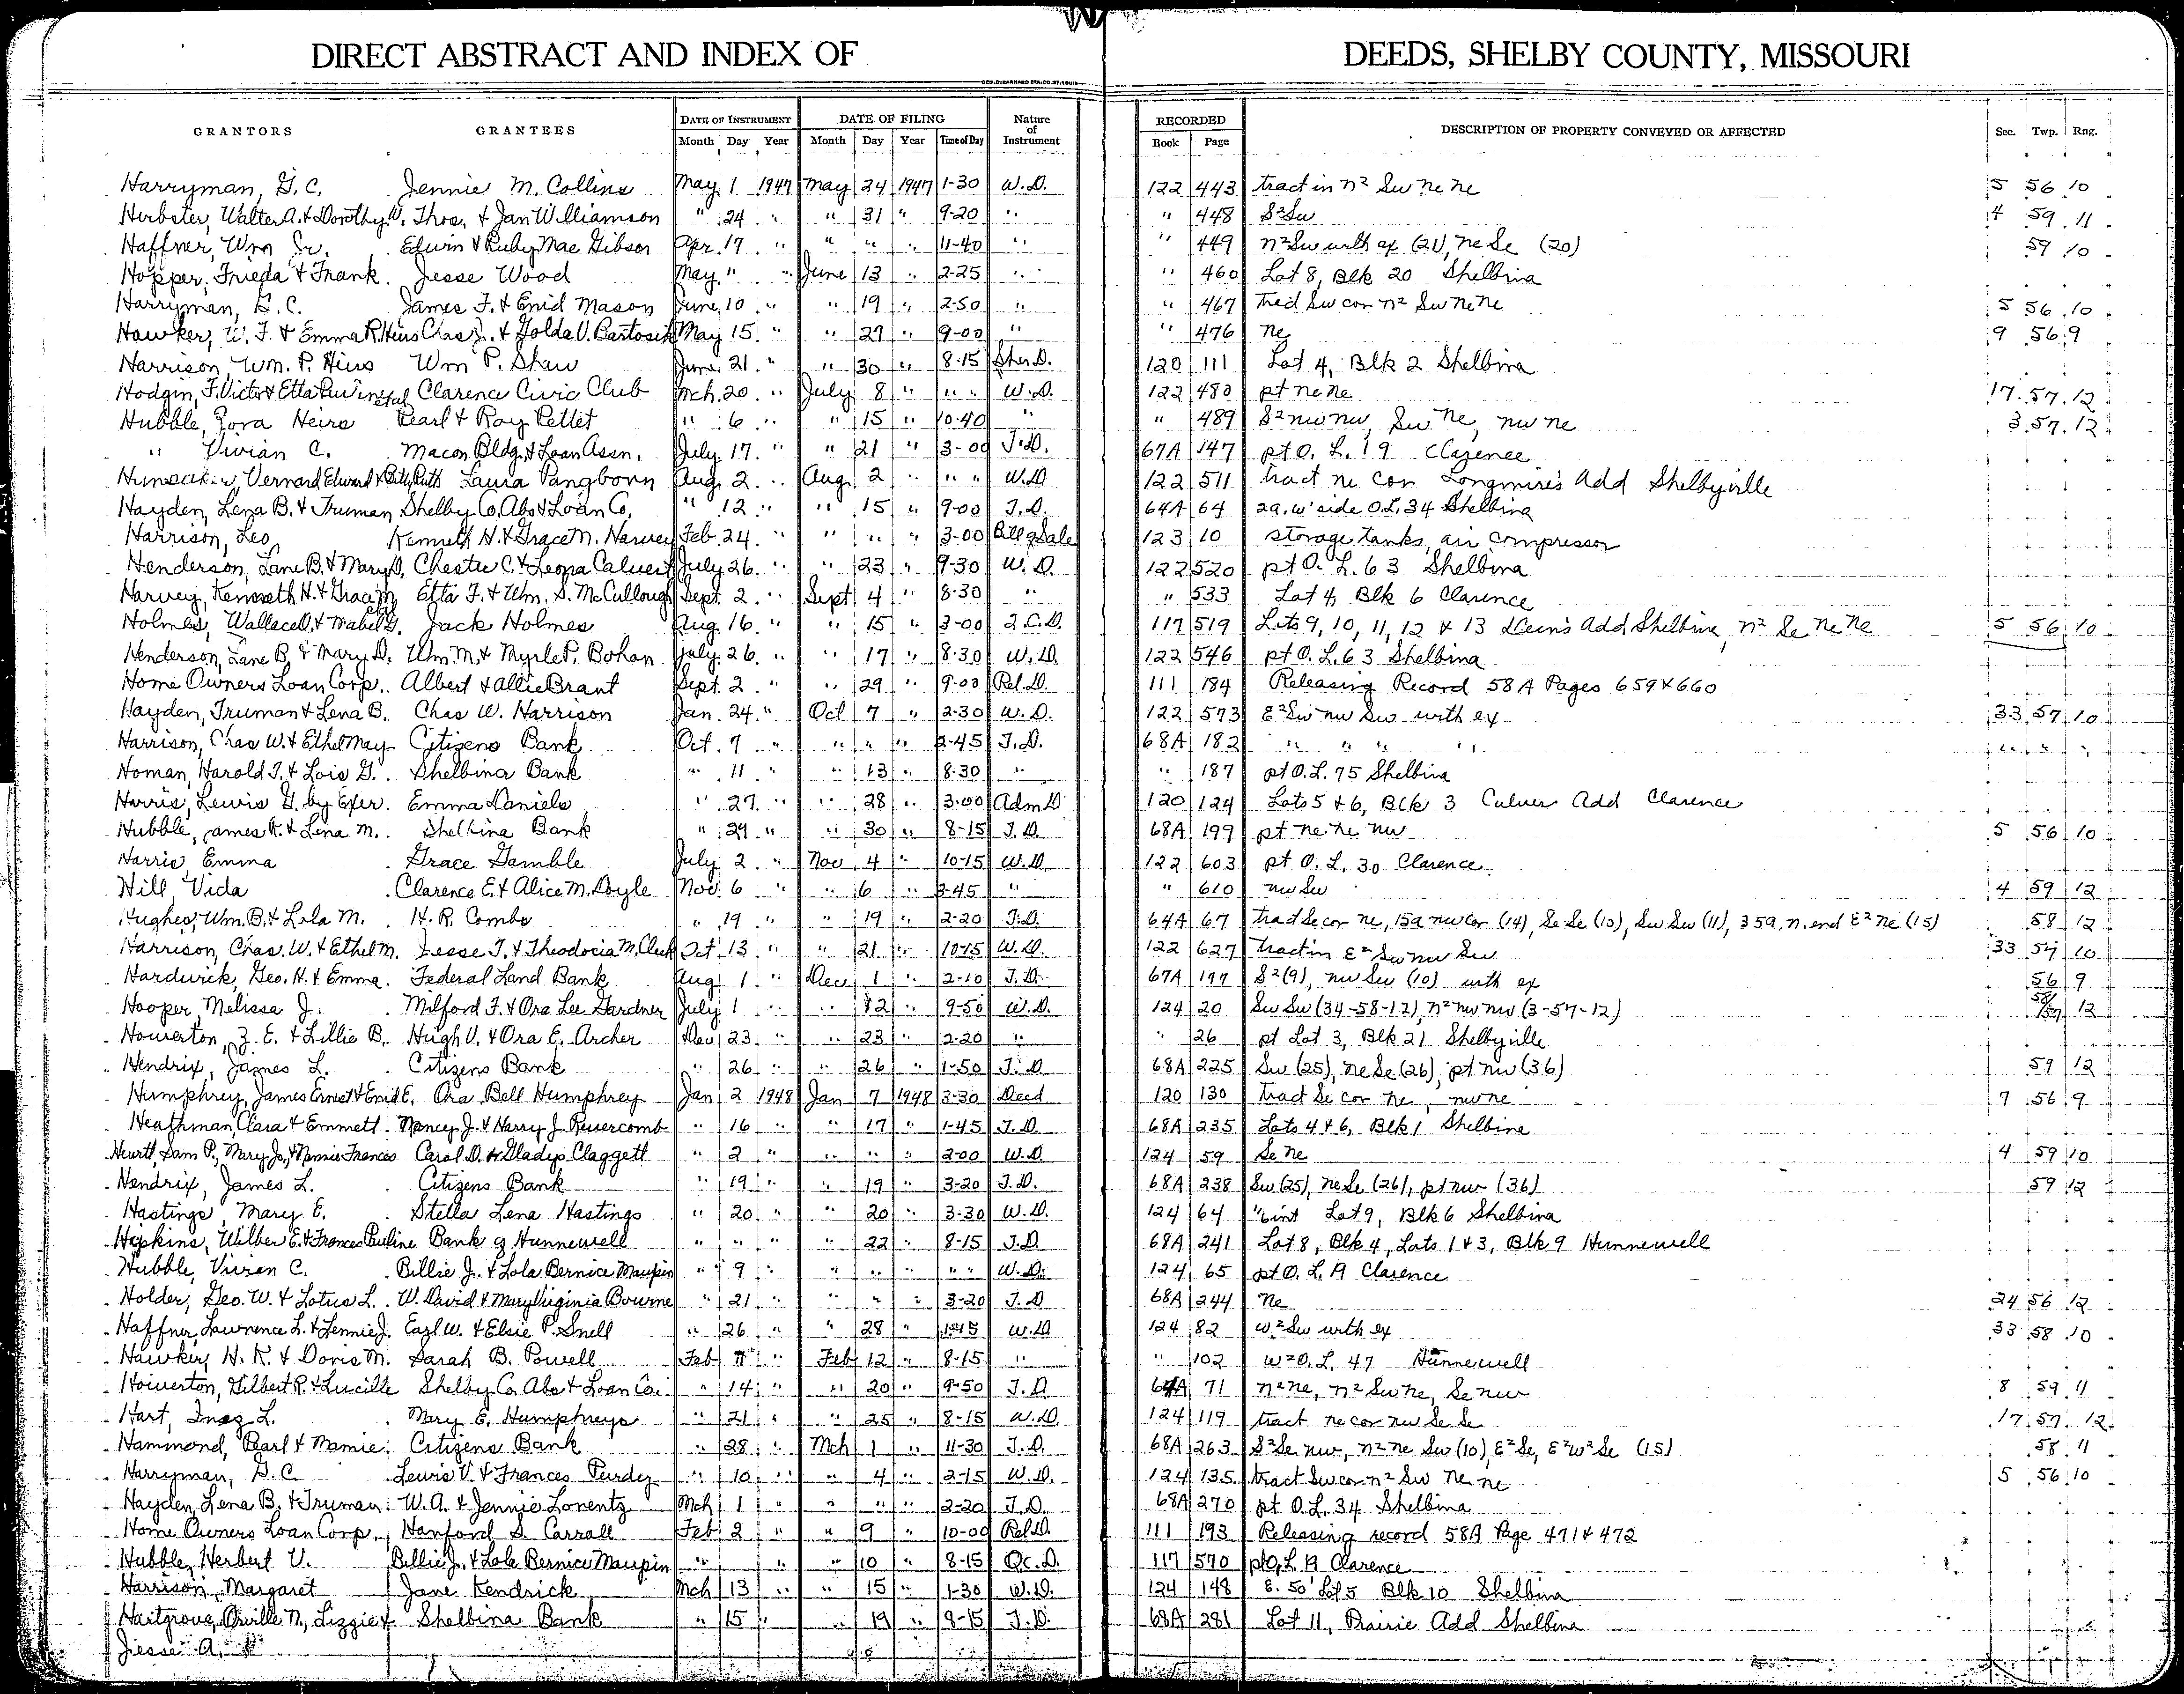 DIRECT ABSTRACT AND INDEX OF DEEDS, SHELBY COUNTY, MISSOURI
GEO.D.BARNARD STA.CO.ST.LOUIS
GRANTORS GRANTEES DATE OF INSTRUMENT DATE OF FILING Nature of Instrument RECORDED DESCRIPTION OF PROPERTY CONVEYED OR AFFECTED Sec. Twp. Rng.
Month Day Year Month Day Year Time of Day Book Page
Harryman, G. C. Jennie M. Collins May 1 1947 May 24 1947 1-30 W.D. 122 443 tract in n² Sw ne ne 5 56 10
Herbster, Walter A. & Dorothy W. Thos. & Jan Williamson " 24 " " 31 " 9-20 " " 448 S²Sw 4 59 11
Haffner, Wm Jr. Edwin & Ruby Mae Gibson Apr. 17 " " " " 11-40 " " 449 n²Sw with ex (21), ne Se (20) 59 10
Hopper, Frieda & Frank Jesse Wood May " " June 13 " 2-25 " " 460 Lot 8, Blk 20 Shelbina
Harryman, G. C. James F. & Enid Mason June 10 " " 19 " 2-50 " " 467 Sw cor n² Sw ne ne 5 56 10
Hawker, W. F. & Emma R. Heirs Chas J. & Golda V. Bartosik May 15 " " 27 " 9-00 " " 476 ne 9 56 9
Harrison, Wm. P. Heirs Wm P. Shaw June 21 " " 30 " 8-15 Sher.D. 120 111 Lot 4, Blk 2 Shelbina
Hodgin, F. Victor & Etta Clarence Civic Club Mch. 20 " July 8 " " " W.D. 122 480 pt ne ne 17 57 12
Hubble, Zora Heirs Pearl & Roy Pettet " 6 " " 15 " 10-40 " " 489 S² nw nw, Sw ne, nw ne 3 57 12
" Vivian C. Macon Bldg. & Loan Assn. July 17 " " 21 " 3-00 T.D. 67A 147 pt O. L. 19 Clarence
Hunsaker, Vernard Edward & Betty Ruth Laura Pangborn Aug. 2 " Aug. 2 " " " W.D. 122 511 tract ne cor Longmire's Add Shelbyville
Hayden, Lena B. & Truman Shelby Co. Abs & Loan Co. " 12 " " 15 " 9-00 T.D. 64A 64 2a. w' side O.L. 34 Shelbina
Harrison, Leo Kenneth H. & Grace M. Harvey Feb. 24 " " " " 3-00 Bill of Sale 123 10 storage tanks, air compressor
Henderson, Lane B. & Mary D. Chester C. & Leona Calvert July 26 " " 23 " 9-30 W.D. 122 520 pt O. L. 63 Shelbina
Harvey, Kenneth H. & Grace M. Etta F. & Wm. S. McCullough Sept. 2 " Sept 4 " 8-30 " " 533 Lot 4, Blk 6 Clarence
Holmes, Wallace O. & Mabel G. Jack Holmes Aug. 16 " " 15 " 3-00 Q.C.D. 117 519 Lots 9, 10, 11, 12 & 13 Add Shelbina, n² Se ne ne 5 56 10
Henderson, Lane B. & Mary D. Wm. M. & Myrle P. Bohon July 26 " " 17 " 8-30 W.D. 122 546 pt O. L. 63 Shelbina
Home Owners Loan Corp. Albert & Allie Brant Sept. 2 " " 29 " 9-00 Rel.D. 111 184 Releasing Record 58A Pages 659 & 660
Hayden, Truman & Lena B. Chas W. Harrison Jan. 24 " Oct 7 " 2-30 W.D. 122 573 E²Sw nw Sw with ex 33 57 10
Harrison, Chas W. & Ethel May Citizens Bank Oct. 7 " " " " 2-45 T.D. 68A 182 " " " " " " "
Homan, Harold T. & Lois G. Shelbina Bank " 11 " " 13 " 8-30 " " 187 pt O.L. 75 Shelbina
Harris, Lewis G. by Exer. Emma Daniels " 27 " " 28 " 3-00 Adm D. 120 124 Lots 5 & 6, Blk 3 Culver Add Clarence
Hubble, James R. & Lena M. Shelbina Bank " 29 " " 30 " 8-15 T.D. 68A 199 pt ne ne nw 5 56 10
Harris, Emma Grace Gamble July 2 " Nov 4 " 10-15 W.D. 122 603 pt O. L. 30 Clarence
Hill, Vida Clarence E. & Alice M. Doyle Nov. 6 " " 6 " 3-45 " " 610 nw Sw 4 59 12
Hughes, Wm. B. & Lola M. H. R. Combs " 19 " " 19 " 2-20 T.D. 64A 67 tract Se cor ne, 15a nw cor (14), Se Se (10), Sw Sw (11), 35a. n. end E² ne (15) 58 12
Harrison, Chas. W. & Ethel M. Jesse T. & Theodocia M. Cleek Oct. 13 " " 21 " 10-15 W.D. 122 627 tract in E² Sw nw Sw 33 57 10
Hardwick, Geo. H. & Emma Federal Land Bank Aug 1 " Dec 1 " 2-10 T.D. 67A 197 S²(9), nw Sw (10) with ex 56 9
Hooper Melissa J. Milford F. & Ora Lee Gardner July 1 " " 12 " 9-50 W.D. 124 20 Sw Sw (34-58-12), n² nw nw (3-57-12) 58/57 12
Howerton, Z. E. & Lillie B. Hugh V. & Ora E. Archer Dec 23 " " 23 " 2-20 " " 26 pt Lot 3, Blk 21 Shelbyville
Hendrix, James L. Citizens Bank " 26 " " 26 " 1-50 T.D. 68A 225 Sw (25), ne Se (26), pt nw (36) 59 12
Humphrey, James Ernest & Enid E. Ora Bell Humphrey Jan 2 1948 Jan 7 1948 3-30 Deed 120 130 tract Se cor ne, nw ne 7 56 9
Heathman, Clara & Emmett Nancy J. & Harry J. Revercomb " 16 " " 17 " 1-45 T.D. 68A 235 Lots 4 & 6, Blk 1 Shelbina
Sam P., Mary Jo, & Nannie Frances Carol D. & Gladys Claggett " 2 " " " " 2-00 W.D. 124 59 Se ne 4 59 10
Hendrix, James L. Citizens Bank " 19 " " 19 " 3-20 T.D. 68A 238 Sw (25), ne Se (26), pt nw (36) 59 12
Hastings, Mary E. Stella Lena Hastings " 20 " " 20 " 3-30 W.D. 124 64 int Lot 9, Blk 6 Shelbina
Hopkins, Wilber E. & Frances Pauline Bank of Hunnewell " " " " 22 " 8-15 T.D. 68A 241 Lot 8, Blk 4, Lots 1 & 3, Blk 9 Hunnewell
Hubble, Vivian C. Billie J. & Lola Bernice Maupin " 9 " " " " " " W.D. 124 65 pt O. L. 19 Clarence
Holder, Geo. W. & Lotus L. W. David & Mary Virginia Bourne " 21 " " " " 3-20 T.D. 68A 244 Ne 24 56 12
Haffner, Lawrence L. & Lennie J. Earl W. & Elsie P. Snell " 26 " " 28 " 1-15 W.D. 124 82 w² Sw with ex 33 58 10
Hawker, H. K. & Doris M. Sarah B. Powell Feb 7 " Feb 12 " 8-15 " " 102 w² O. L. 47 Hunnewell
Howerton, Gilbert R. & Lucille Shelby Co. Abs & Loan Co. " 14 " " 20 " 9-50 T.D. 64A 71 n² ne, n² Sw ne, Se nw 8 59 11
Hart, Inez L. Mary E. Humphreys " 21 " " 25 " 8-15 W.D. 124 119 tract ne cor nw Se Se 17 57 12
Hammond, Pearl & Mamie Citizens Bank " 28 " Mch 1 " 11-30 T.D. 68A 263 S² Se nw, n² ne Sw (10), E² Se, E² W² Se (15) 58 11
Harryman, G. C. Lewis V. & Frances Purdy " 10 " " 4 " 2-15 W.D. 124 135 tract Sw cor n² Sw ne ne 5 56 10
Hayden, Lena B. & Truman W. A. & Jennie Lorentz Mch 1 " " " " 2-20 T.D. 68A 270 pt O. L. 34 Shelbina
Home Owners Loan Corp. Hanford S. Carroll Feb 2 " " 9 " 10-00 Rel D. 111 193 Releasing record 58A Page 471 & 472
Hubble, Herbert V. Billie J. & Lola Bernice Maupin " " " 10 " 8-15 Qc.D. 117 570 pt O. L 19 Clarence
Harrison, Margaret Jane Kendrick Mch 13 " " 15 " 1-30 W.D. 124 148 E. 50' Lot 5 Blk 10 Shelbina
Hartgrove, Orville N., Lizzie & Shelbina Bank " 15 " " 19 " 8-15 T.D. 68A 281 Lot 11, Prairie Add Shelbina
Jesse A.